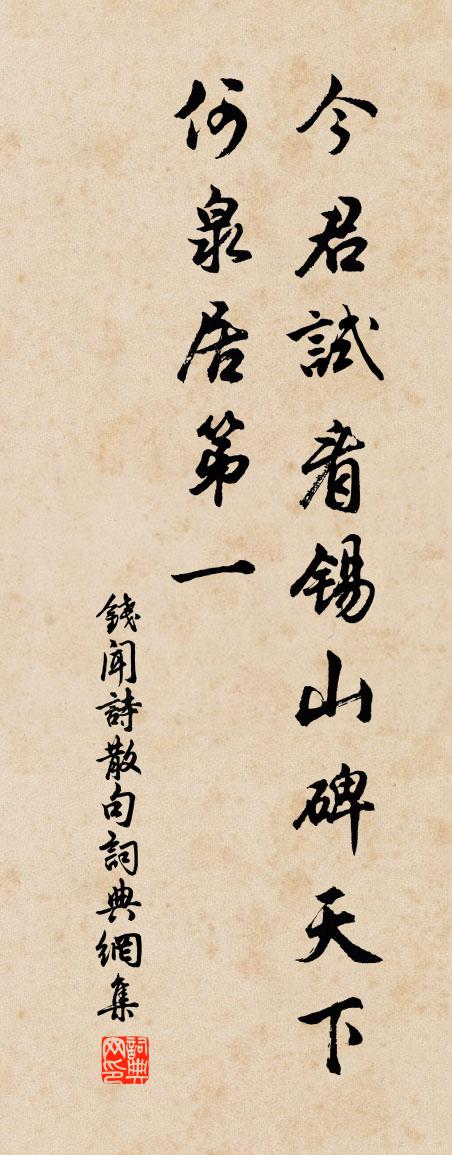 今君試看錫山碑天下
何泉居第一
錢聞詩散句詞典網集
詞典
网印